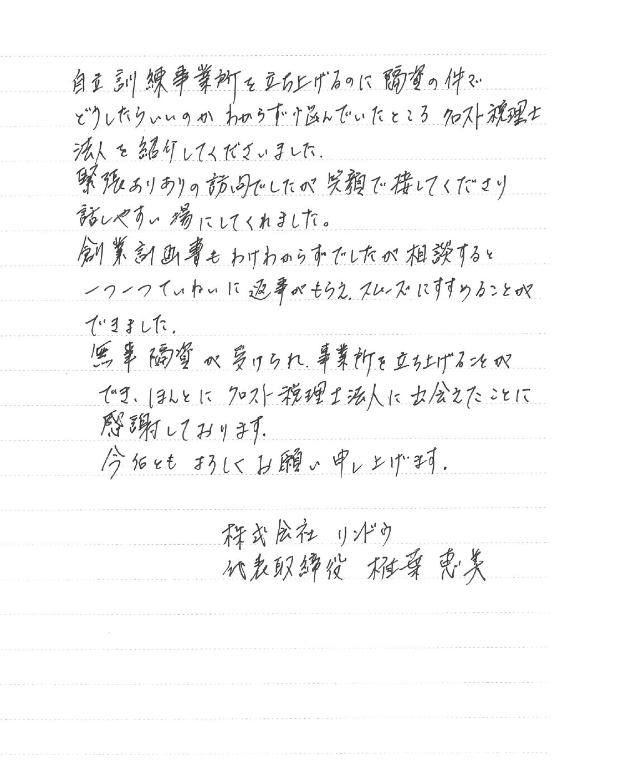 自立訓練事業所を立ち上げるのに融資の件で
どうしたらいいのかわからず悩んでいたところ クロスト税理士
法人を紹介してくださいました.
緊張ありありの訪問でしたが笑顔で接してくださり
話しやすい場にしてくれました。
創業計画書もわけわからずでしたが相談すると
一つ一つていねいに返事がもらえ、スムーズにすすめることが
できました.
無事融資が受けられ、事業所を立ち上げることが
でき、ほんとに クロスト税理士法人に出会えたことに
感謝しております.
今后とも よろしくお願い申し上げます.
株式会社 リンドウ
代表取締役 椎葉 恵美